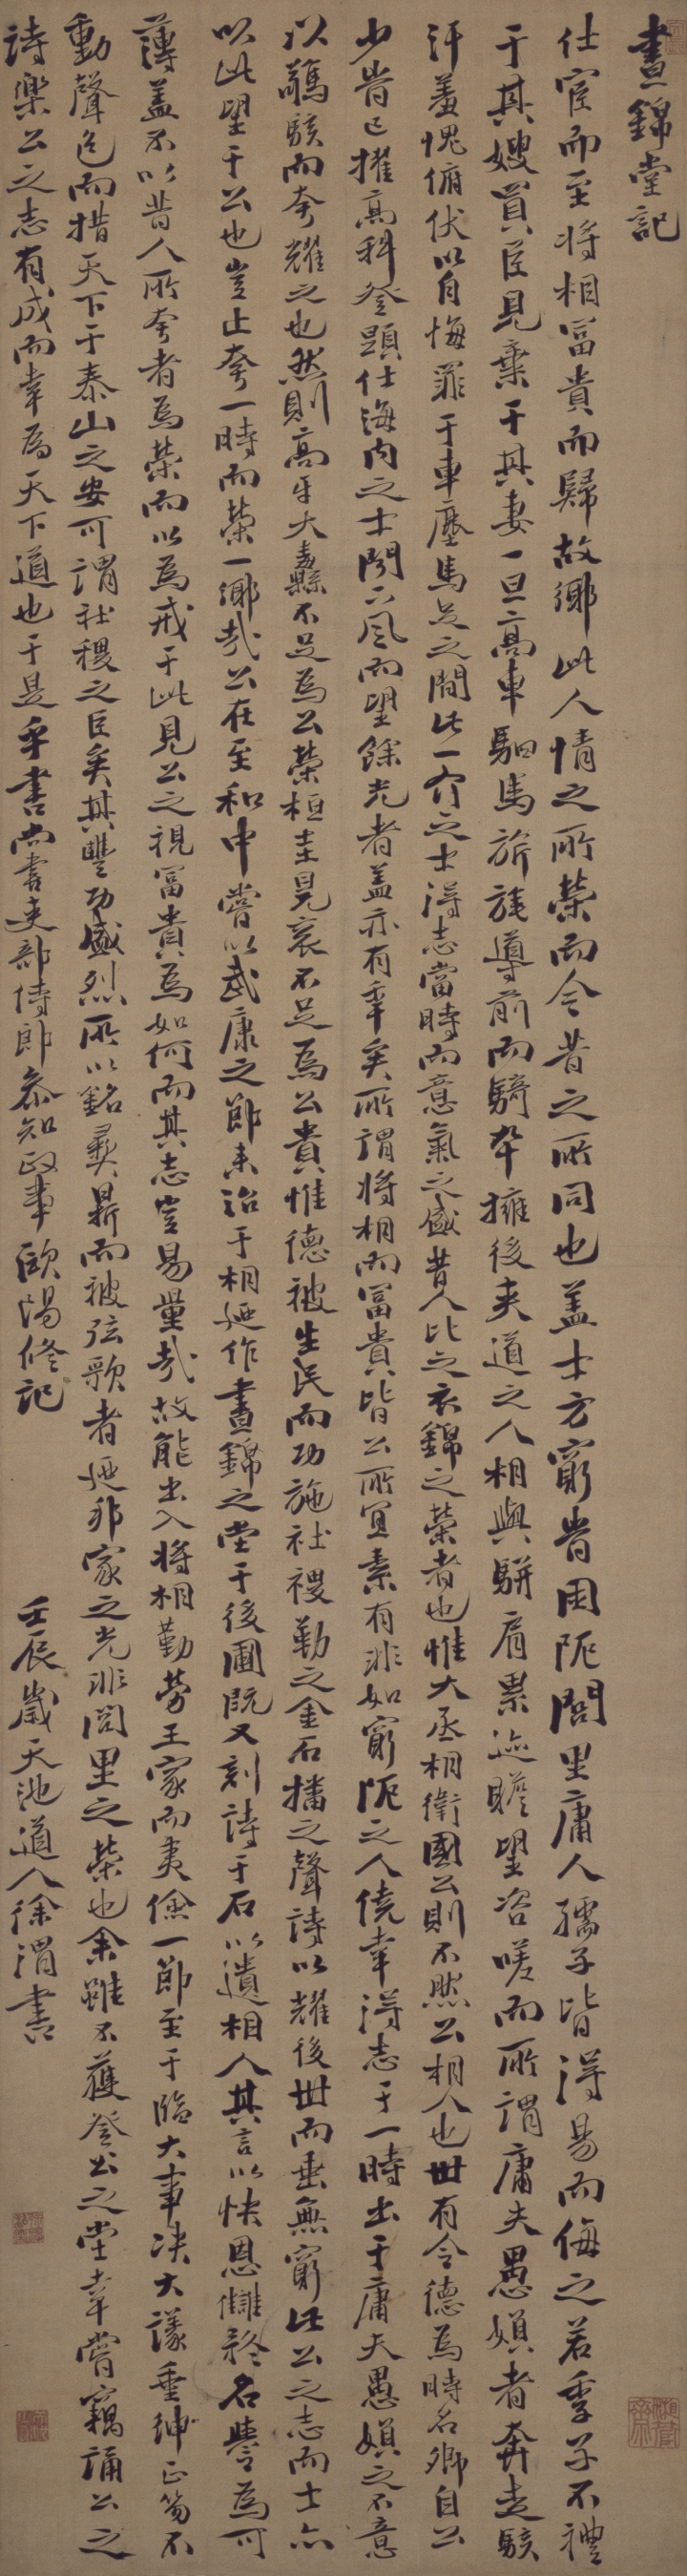 晝錦堂記
仕宦而至將相冨貴而歸故鄉此人情之所榮而今昔之所同也盖士方窮時困阨閭里庸人孺子皆得易而侮之若季子不禮
于其嫂買臣見棄于其妻一旦高車駟馬旂旄導前而騎卒擁後夾道之人相與駢肩累迹瞻望咨嗟而所謂庸夫愚婦者奔走駭
汗羞愧俯伏以自悔罪于車塵馬足之間此一介之士得志當時而意氣之盛昔人比之衣錦之榮者也惟大丞相衛國公則不然公相人也世有令德為時名卿自公
少時已擢高科登顯仕海内之士聞下風而望餘光者盖亦有年矣所謂將相而冨貴皆公所宜素有非如窮阨之人僥幸得志于一時出于庸夫愚婦之不意
以驚駭而夸耀之也然則高牙大纛不足為公榮桓圭冕衮不足為公貴惟德被生民而功施社稷勒之金石播之聲詩以耀後世而垂無窮此公之志而士亦
以此望于公也豈止夸一時而榮一鄉哉公在至和中嘗以武康之節来治于相廼作晝錦之堂于後圃既又刻詩于石以遺相人其言以快恩讎矜名譽為可
薄盖不以昔人所夸者為榮而以為戒于此見公之視冨貴為如何而其志豈易量哉故能出入將相勤勞王家而夷儉一節至于臨大事决大議垂紳正笏不
動聲色而措天下于泰山之安可謂社稷之臣矣其豐功盛烈所以銘彞鼎而被弦歌者廼邦家之光非閭里之榮也余雖不獲登公之堂幸嘗竊誦公之
詩樂公之志有成而幸為天下道也于是乎書尚書吏部侍郎叅知政事歐陽修記
壬辰歲天池道人徐渭書
湘管齋